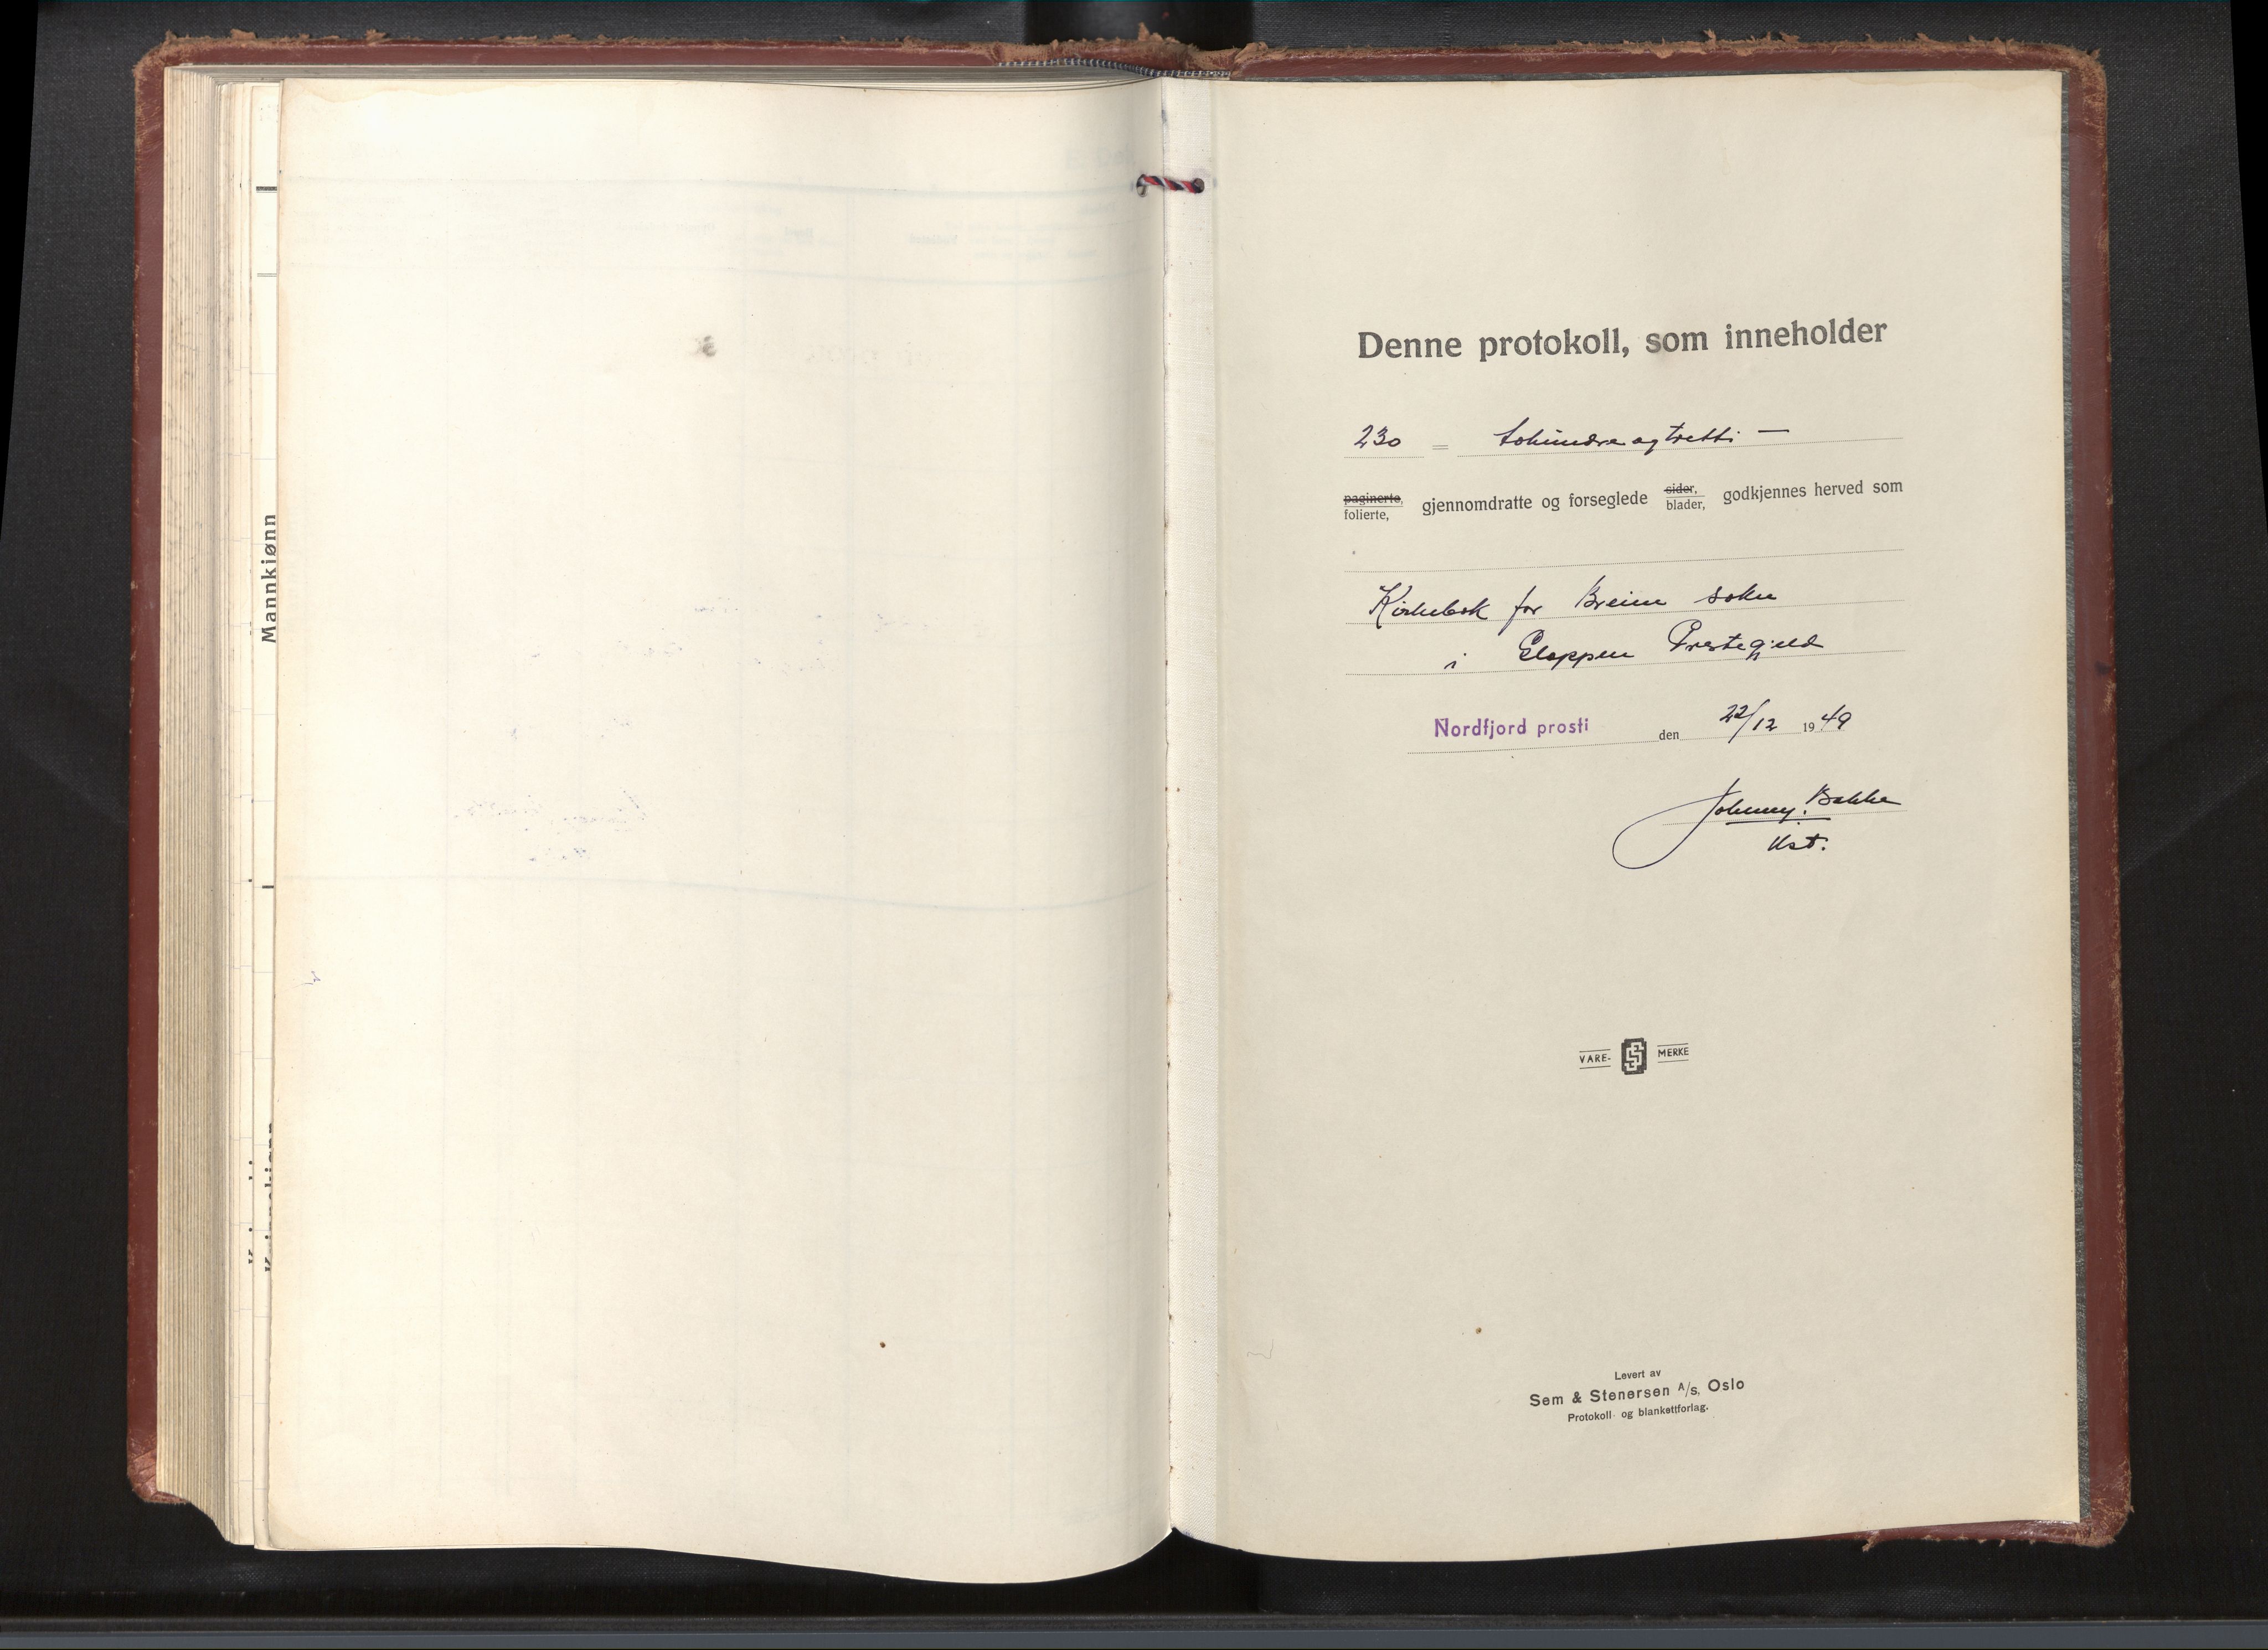 Mannkjønn
Denne protokoll, som inneholder
230 = tohundre og tretti —
paginerte, folierte, gjennomdratte og forseglede sider, blader, godkjennes herved som
Kirkebok for Breim sokn
i Gloppen Prestegjeld
Nordfjord prosti den 22/12 1949
Johnny. Bakke
Kst.
VARE- SS MERKE
Levert av
Sem & Stenersen A/s, Oslo
Protokoll- og blankettforlag.